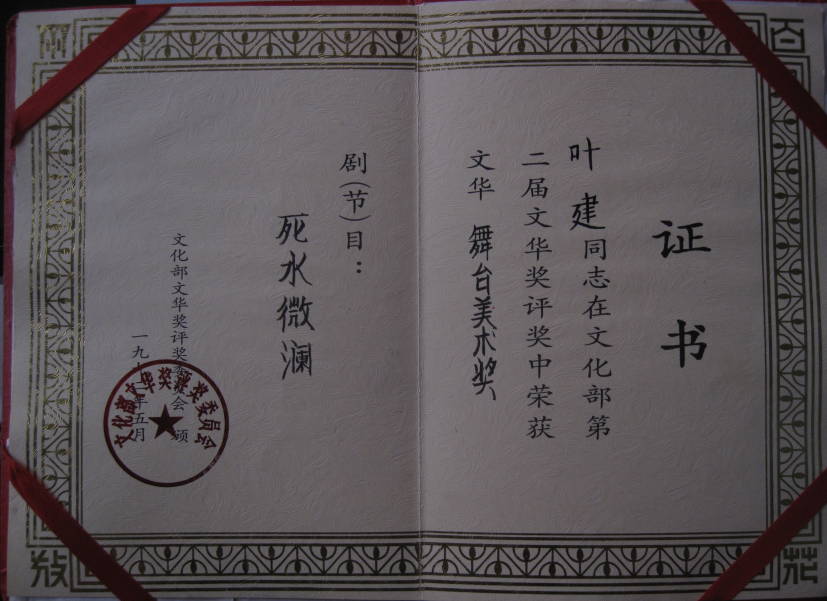 证书
叶建同志在文化部第
二届文华奖评奖中荣获
文华 舞台美术奖
剧(节)目:
死水微澜
文化部文华奖评奖委员会 颁
一九 年五月
文化部文华奖评奖委员会